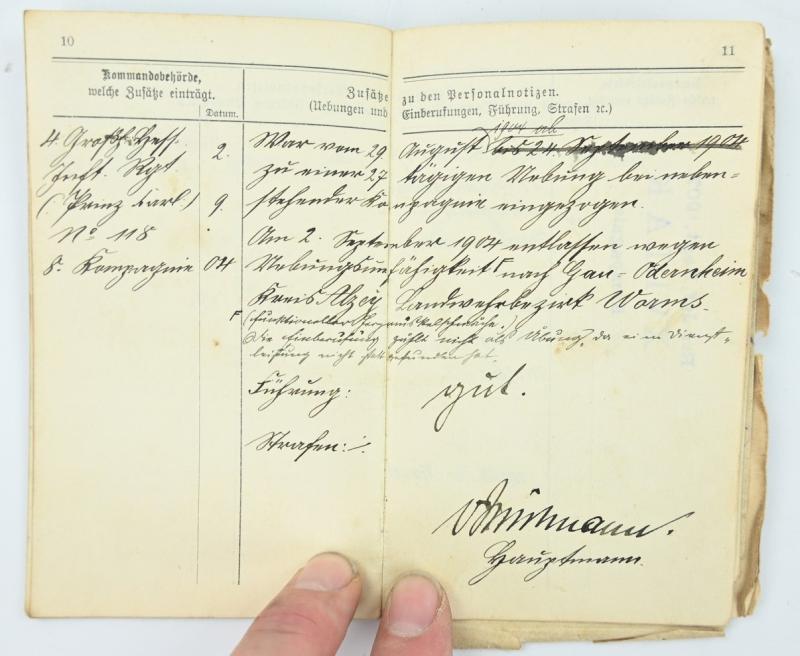 10
11
Kommandobehörde,
welche Zusätze einträgt.
Datum.
Zusätze zu den Personalnotizen.
(Uebungen und Einberufungen, Führung, Strafen ꝛc.)
4. Großh. Hess.
Inft. Rgt.
(Prinz Carl)
No 118
8. Kompagnie
2.
9.
04
1904 ab
War vom 29 August bis 24. September 1904
zu einer 27 tägigen Uebung bei neben=
stehender Kompagnie eingezogen.
Am 2. September 1904 entlassen wegen
Uebungsunfähigkeit F nach Gau=Odernheim
Kreis Alzey Landwehrbezirk Worms.
F (funktioneller Herzmuskelschwäche.
Die Einberufung zählt nicht als Übung, da eine Dienst=
leistung nicht stattgefunden hat.
Führung: gut.
Strafen: ./.
Hauptmann.